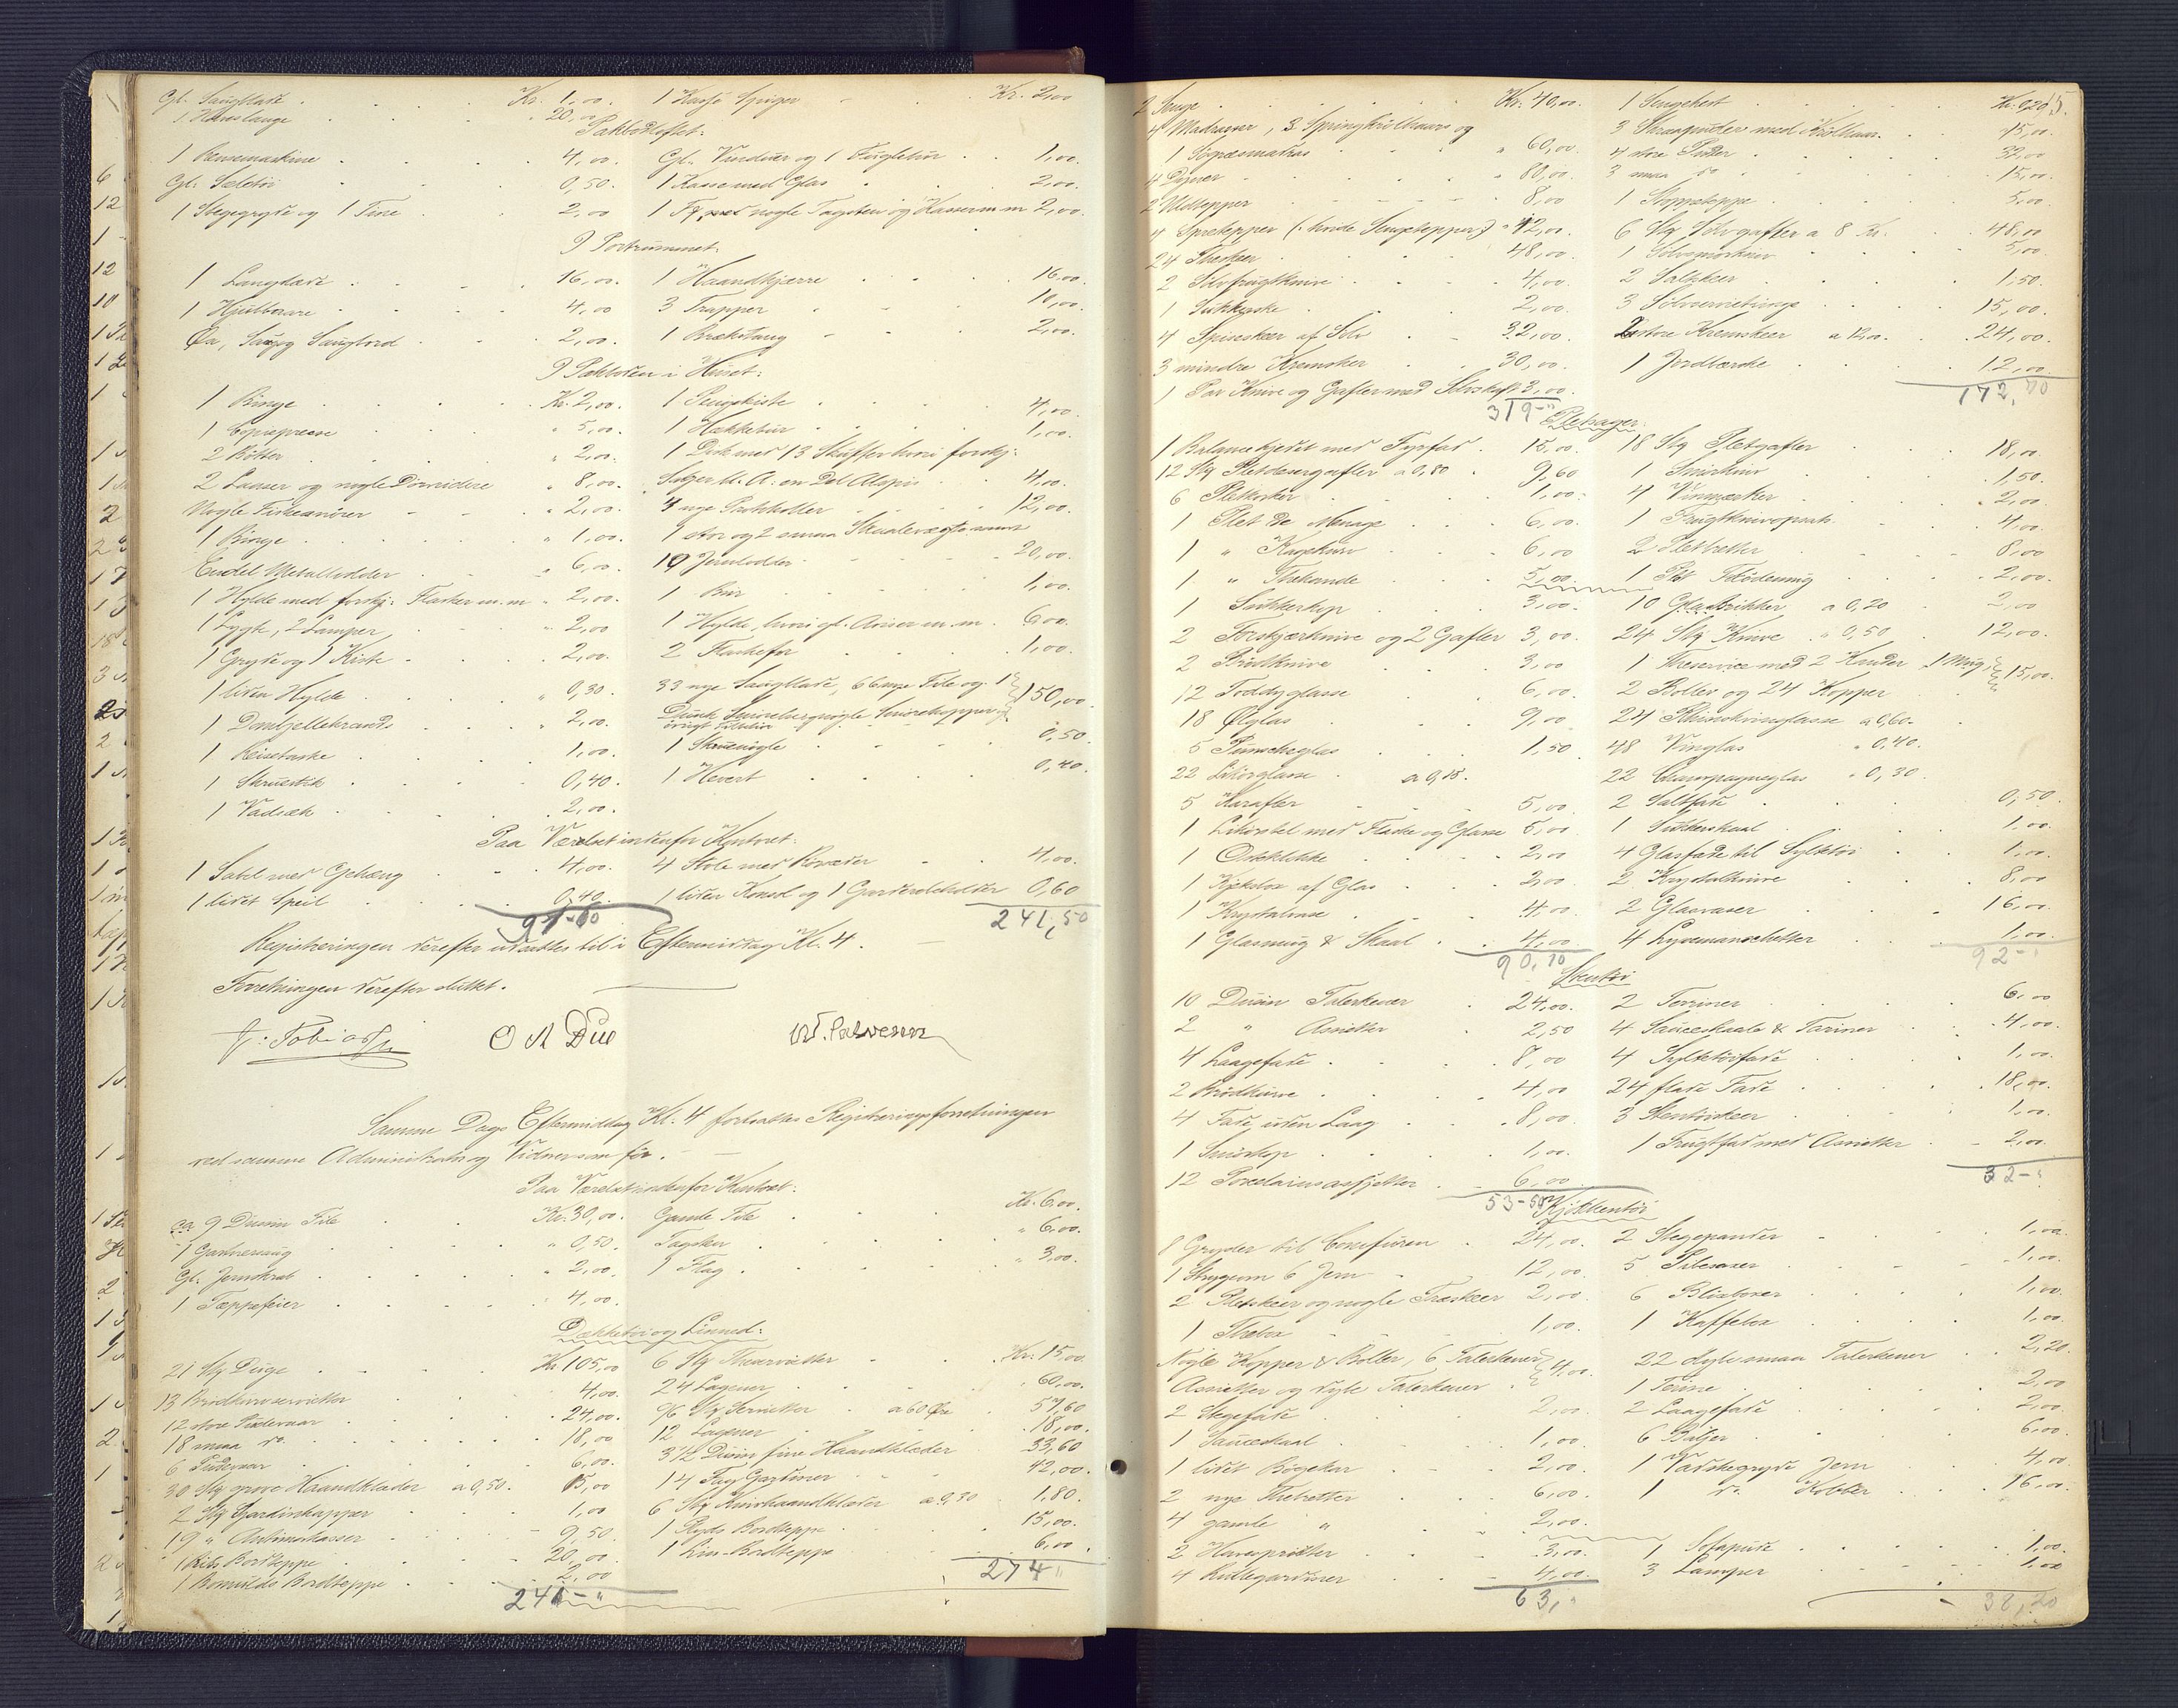 Gl. Saugblade . . . Kr. 1,00. 1 Kasse Spiger . . Kr. 2,00
1 Vandslange . . . " 20,00
Pakbodloftet:
1 Rensemaskine . . . 4,00. Gl. Vinduer og 1 Fuglebur . . 1,00.
Gl. Seletøi . . . 0,50. 1 Kasse med Glas . . 2,00.
1 Stegegryde og 1 Tine . . 2,00 1 Fg. med nogle Tagsten og Kasser m.m 2,00.
I Portrummet:
1 Langslæde . . . 16,00. 1 Haandkjærre . . . 16,00.
1 Hjulbørare . . . 4,00 3 Trapper . . . 10,00.
Øx, Saug og Saugbord . . 2,00. 1 Brækstang . . . 2,00.
I Pakboden i Huset:
1 Binge . . . Kr. 2,00. 1 Pengekiste . . . 4,00.
1 Copiepresse . . . " 5,00. 1 Hækkebur . . . 1,00.
2 Køtter . . . " 2,00. 1 Disk med 13 Skuffer hvori forskj:
2 Laaser og nogle Dørvridere " 8,00. Sager bl. A. en Del Alapin . . 4,00.
Nogle Fiskesnører . . " 2,00. 4 nye Protokoller . . 12,00.
1 Binge . . . " 1,00. 1 stor og 2 smaa Skaalevægte samt
Endel Metallodder . . " 6,00. 19 Jernlodder . . . 20,00.
1 Hylde med forskj: Flasker m.m " 2,00. 1 Bur . . . 1,00.
1 Lygte, 2 Lamper, . . " 2,00 1 Hylde, hvori gl. Aviser m.m. 6,00.
1 Gryde og 1 Kiste . . 2,00. 2 Flaskefor . . . 1,00.
1 liden Hylde . . . " 0,30. 33 nye Saugblade, 66 nye File og 1
1 Donkjellekrandts . . 2,00. Dunk Smørelse, nogle Smørekopper og 150,00.
1 Reisetaske . . . 1,00. 1 Skruenøgle . . . 0,50.
1 Skruestik . . . 0,40. 1 Hevert . . . 0,40.
1 Vadsæk . . . 2,00.
Paa Værelset indenfor Kontoret:
1 Sabel med Gehæng . . 4,00. 4 Stole med Rørsæder . . 4,00.
1 lidet Speil . . . 0,40. 1 liden Konsol og 1 Garderobeholder 0,60
97-60 241,50
Registreringen derefter udsattes til i Eftermiddag Kl. 4.
Forretningen derefter sluttet.
J. Tobiassen O A Due W. Salvesen
Samme Dags Eftermiddag Kl. 4 fortsattes Registreringsforretningen
ved samme Administrator og Vidner som før.
Paa Værelset indenfor Kontoret:
ca 9 Dusin File . . Kr. 30,00. Gamle File . . . Kr. 6,00.
1 Gardinstang . . . " 0,50. Tagskur . . . " 6,00.
Gl. Jernskrab . . . " 2,00. 1 Flag . . . " 3,00.
1 Tæppefeier . . . 4,00.
Dækketøi og Linned:
21 Stk Duge . . Kr 105,00 6 Stk Theservietter . . Kr. 15,00.
13 Brødkurvservietter . 4,00. 24 Lagener . . . 60,00.
12 store Pudevaar . . 24,00. 96 Stk Servietter . a 60 Øre . 57,60
18 smaa do. . . 18,00 12 Lagener . . . 18,00.
6 Pudevaar . . . 6,00. 3 1/2 Dusin fine Haandklæder 33,60
30 Stk grove Haandklæder a 0,50. 15,00 14 Fag Gardiner . . 42,00.
2 Stk Gardinkapper . . 1,00 6 Stk Knivhaandklæder a 0,30 1,80.
19 " Antimakasser . . 9,50. 1 Plyds Bordteppe . . 15,00.
1 Ribs Bordteppe . . 20,00. 1 Lin-Bordteppe . . 6,00.
1 Bomulds Bordteppe . . 2,00
241-" 274"
2 Senge . . . Kr. 40,00. 1 Sengehest . . . Kr. 0,20 15.
4 Madrasser, 3 Springkrølhaars og 3 Skraaputer med Krølhaar . . 15,00.
1 Søgræsmadras . . " 60,00. 4 store Puder . . . 32,00
4 Dyner . . . " 80,00. 3 smaa do . . . 15,00.
2 Uldtepper . . . 8,00 1 Stoppeteppe . . . 5,00.
4 Spretepper (: hvide Sengetepper:) " 12,00. 6 Stk Sølvgafler a 8 Kr. . . 48,00
24 Theskeer . . . 48,00. 1 Sølvsmørkniv . . 5,00.
2 Sølvfrugtknive . . 4,00. 2 Saltskeer . . . 1,50.
1 Sukkerske . . . 2,00. 3 Sølvservietringe . . 15,00.
4 Spiseskeer af Sølv . . 32,00. 2 store Kremskeer a 12,00. . 24,00.
3 mindre Kremskeer . . 30,00. 1 Jordbærske . . . 12,00.
1 Par Knive og Gafler med Sølvskaft 3,00. 172,70
319-"
Pletsager:
1 Balancekjedel med Fyrfad . 15,00. 18 Stk Pletgafler . . 18,00.
12 Stk Pletdessertgafler a 0,80 . 9,60 1 Smørkniv . . . 1,50.
6 Pletkorker . . . 1,00. 4 Vinmærker . . . 2,00.
1 Plet de Menage . . 6,00. 1 Frugtknivopsats . . 4,00.
1 " Kagekurv . . . 6,00 2 Pletbætter . . . 8,00
1 " Thekande . . . 5,00. 1 Plet Flødemug . . . 2,00.
1 Sukkerkop . . . 3,00. 10 Glasbrikker a 0,20 2,00
2 Forskjærknive og 2 Gafler 3,00. 24 Stk Knive " 0,50 12,00.
2 Brødknive . . . 3,00 1 Theservice med 2 Kander 1 Mug,
12 Toddyglasse . . . 6,00. 2 Boller og 24 Kopper 15,00.
18 Ølglas . . . 9,00 24 Rhinskvinglasse a 0,60.
5 Punscheglas . . . 1,50 48 Vinglas " 0,40.
22 Likørglasse . a 0,15. 22 Champagneglas " 0,30.
5 Karafler . . . 5,00. 2 Saltfade . . . 0,50.
1 Likørstel med Flaske og Glasse 5,00 1 Sukkerskaal . . . 1,00.
1 Osteklokke . . . 2,00 4 Glasfade til Syltetøi . . 1,00.
1 Kjeksbox af Glas . . 2,00 2 Krystalknive . . . 8,00
1 Krystalvase . . . 4,00 2 Glasvaser . . . 16,00.
1 Glasmug & Skaal . . 4,00. 4 Lysemanschetter . . 1,00.
90,10 92-"
Stentøi
10 Dusin Talerkener . 24,00. 2 Terriner . . . 6,00
2 " Asietter . 2,50 4 Sauceskaale & Tariner . . 4,00.
4 Laagefade . . . 8,00 4 Syltetøifade . . . 1,00.
2 Brødkurve . . . 4,00 24 flade Fade . . . 18,00.
4 Fade uden Laag . . 8,00. 3 Stentøiskeer . . . 1,00.
1 Smørkop . . . 1,00. 1 Frugtfad med Asietter . . 2,00.
12 Porcelainsasjetter . . 6,00 32-"
53-50
Kjøkkentøi
8 Gryder til Comfuren . 24,00. 2 Stegepander . . . 1,00.
1 Strygeovn 6 Jern . . 12,00. 5 Pilevaser . . . 1,00.
2 Pletskeer og nogle Træskeer 2,00. 6 Blikboxer . . . 1,00.
1 Thebox . . . 1,00. 1 Kaffebox . . . 1,00.
Nogle Kopper & Boller, 6 Talerkener 22 dybe smaa Talerkener . . 2,20.
Asietter og dybe Talerkener . 4,00. 1 Terine . . . 2,00
2 Stegefade . . . 2,00. 2 Laagefade . . . 2,00.
1 Sauceskaal . . . 1,00. 6 Baljer . . . 6,00.
1 lidet Bøgekar . . 2,00. 1 Vadskegryde Jern . . 4,00.
2 nye Thebretter . . 6,00. 1 do. Kobber . . 16,00.
4 gamle " . . 2,00.
2 Haveprøiter . . . 3,00. 1 Sofapude . . . 1,00.
4 Rullegardiner . . 4,00. 3 Lamper . . . 1,00
63," 38,20